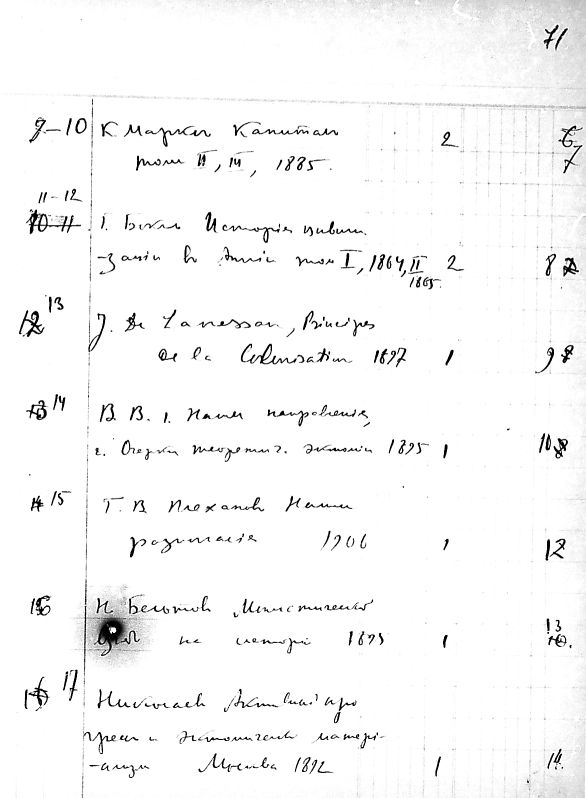 71
9–10 К Маркс Капитал 2 6
том II, III, 1885. 7
11–12
10 11 Г. Бокль Исторія цивили-
-заціи въ Англіи том I, 1864, II 2 8
1865
12 13 J. De Lanessan, Principes
de la Colonisation 1897 1 9
13 14 В. В. 1. Наши направленія,
2. Очерки теоретич. экономіи 1895 1 10
14 15 Г. В Плеханов Наши
разногласія 1906 1 12
16 Н. Бельтов Монистическій 13
на исторі 1895 1 10.
17 Николаев Активный про
гресс и экономическ матері-
-ализм Москва 1892 1 14.